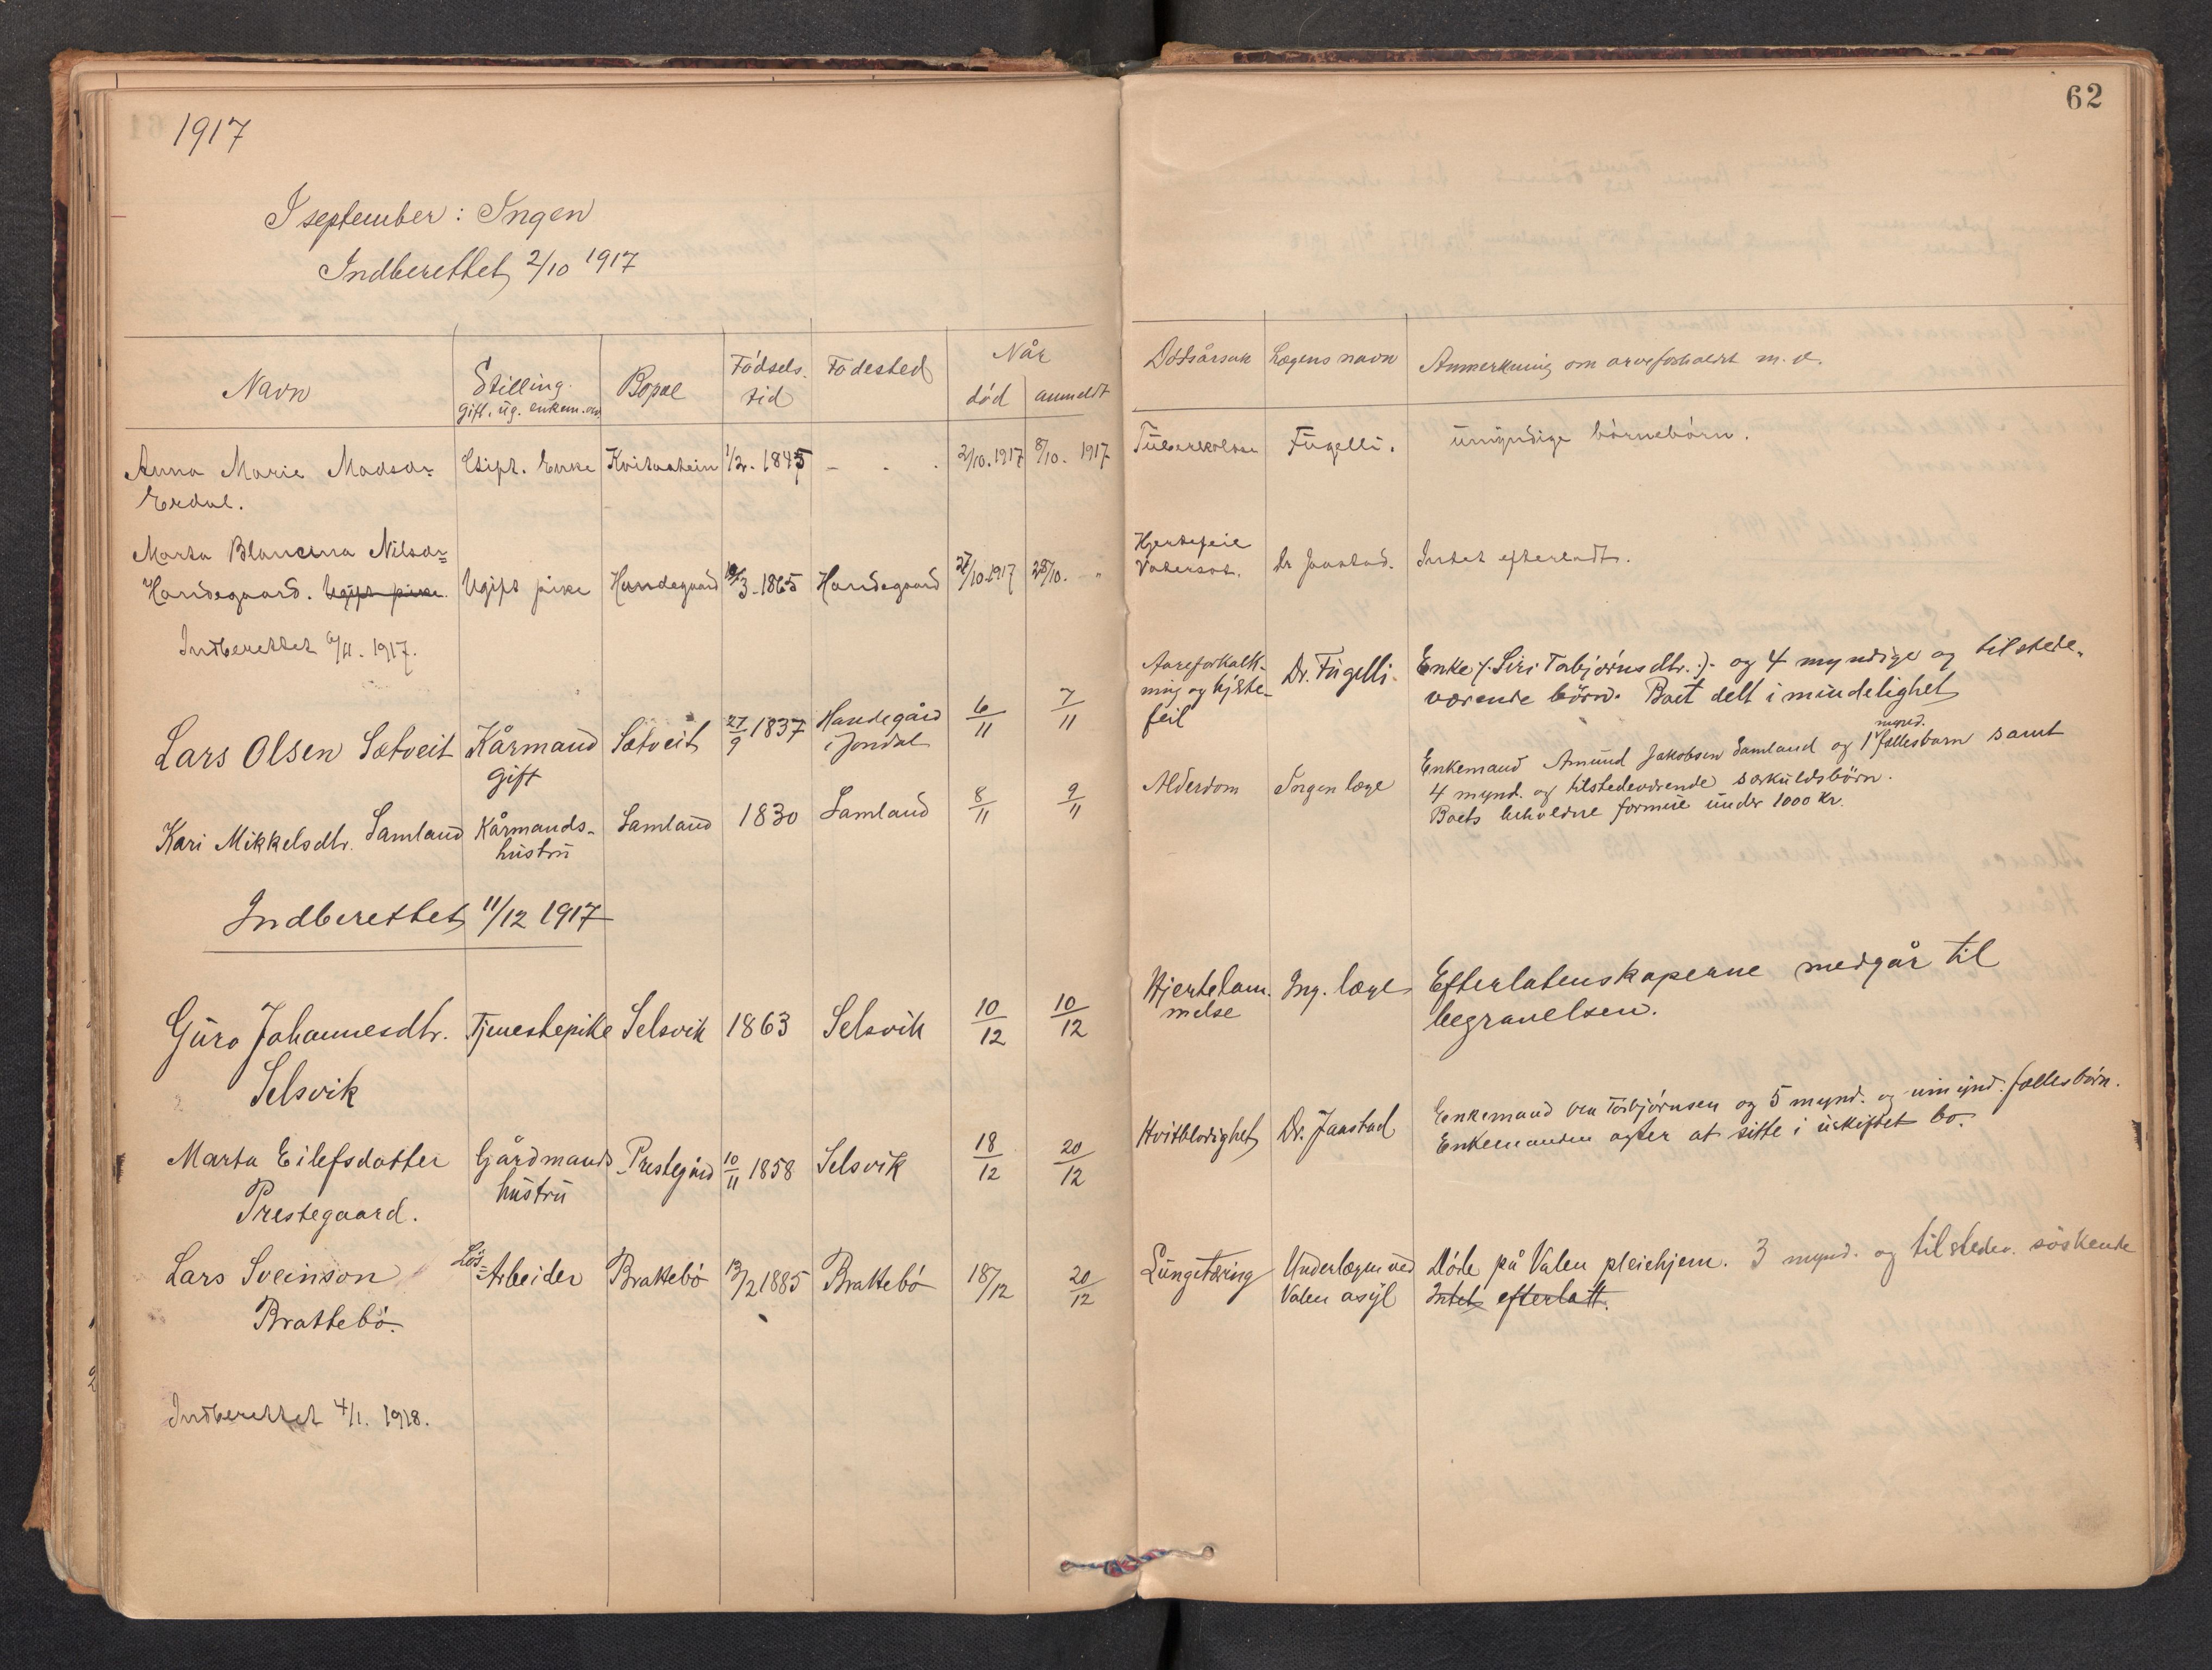 1917
62
I september: Ingen
Indberettet 2/10 1917
Navn
Stilling
gift. ug. enkem.
Bopæl
Fødsels-
tid
Fødested
Når
død
anmeldt
Dødsårsak
Lægens navn
Anmerkning om arveforholdet m. v.
Anna Marie Madsdr
Erdal.
Enke
1845
2/10. 1917
8/10. 1917
Tuberkolose
Fugelli.
umyndige børnebørn.
Marta Nilsdr=
Handegaard. Ugift pike
Ugift pike
Handegaard
1865
Handegaard
27/10. 1917
28/10. "
Hjertefeil
Vatersot.
Dr Jaastad.
Intet efterladt.
Indberettet 6/11. 1917.
Lars Olsen Sætveit
Kårmand
gift
Sætveit
27/9 1837
Handegård
i Jondal
6/11
7/11
Aareforkalk-
ning og hjerte-
feil
Dr. Fugelli.
Enke /: Siri Torbjørnsdtr. :/ og 4 myndige og tilstede-
værende børn. Boet delt i mindelighet
Kari Mikkelsdtr. Samland
Kårmands-
hustru
Samland
1830
Samland
8/11
9/11
Alderdom
Ingen læge
Enkemand Amund Jakobsen Samland og 1 mynd. fællesbarn samt
4 mynd. og tilstedeværende særkuldsbørn.
Boets beholdne formue under 1000 Kr.
Indberettet 11/12 1917
Guro Johannesdtr.
Selsvik
Tjenestepike
Selsvik
1863
Selsvik
10/12
10/12
Hjertelam-
melse
Ing. læge
Efterlatenskaperne medgår til
begravelsen.
Marta Eilefsdatter
Prestegaard.
Gårdmands
hustru
Prestegård
10/11 1858
Selsvik
18/12
20/12
Hvitblodighet
Dr. Jaastad
Enkemand Torbjørnsen og 5 mynd. og umynd. fællesbørn.
Enkemanden agter at sitte i uskiftet bo.
Lars Sveinson
Brattebø.
Løs-
Arbeider
Brattebø
13/2 1885
Brattebø
18/12
20/12
Lungetæring
Underlægen ved
Valen asyl
Døde på Valen pleiehjem. 3 mynd. og tilstedev. søskende
Intet efterlatt.
Indberettet 4/1. 1918.